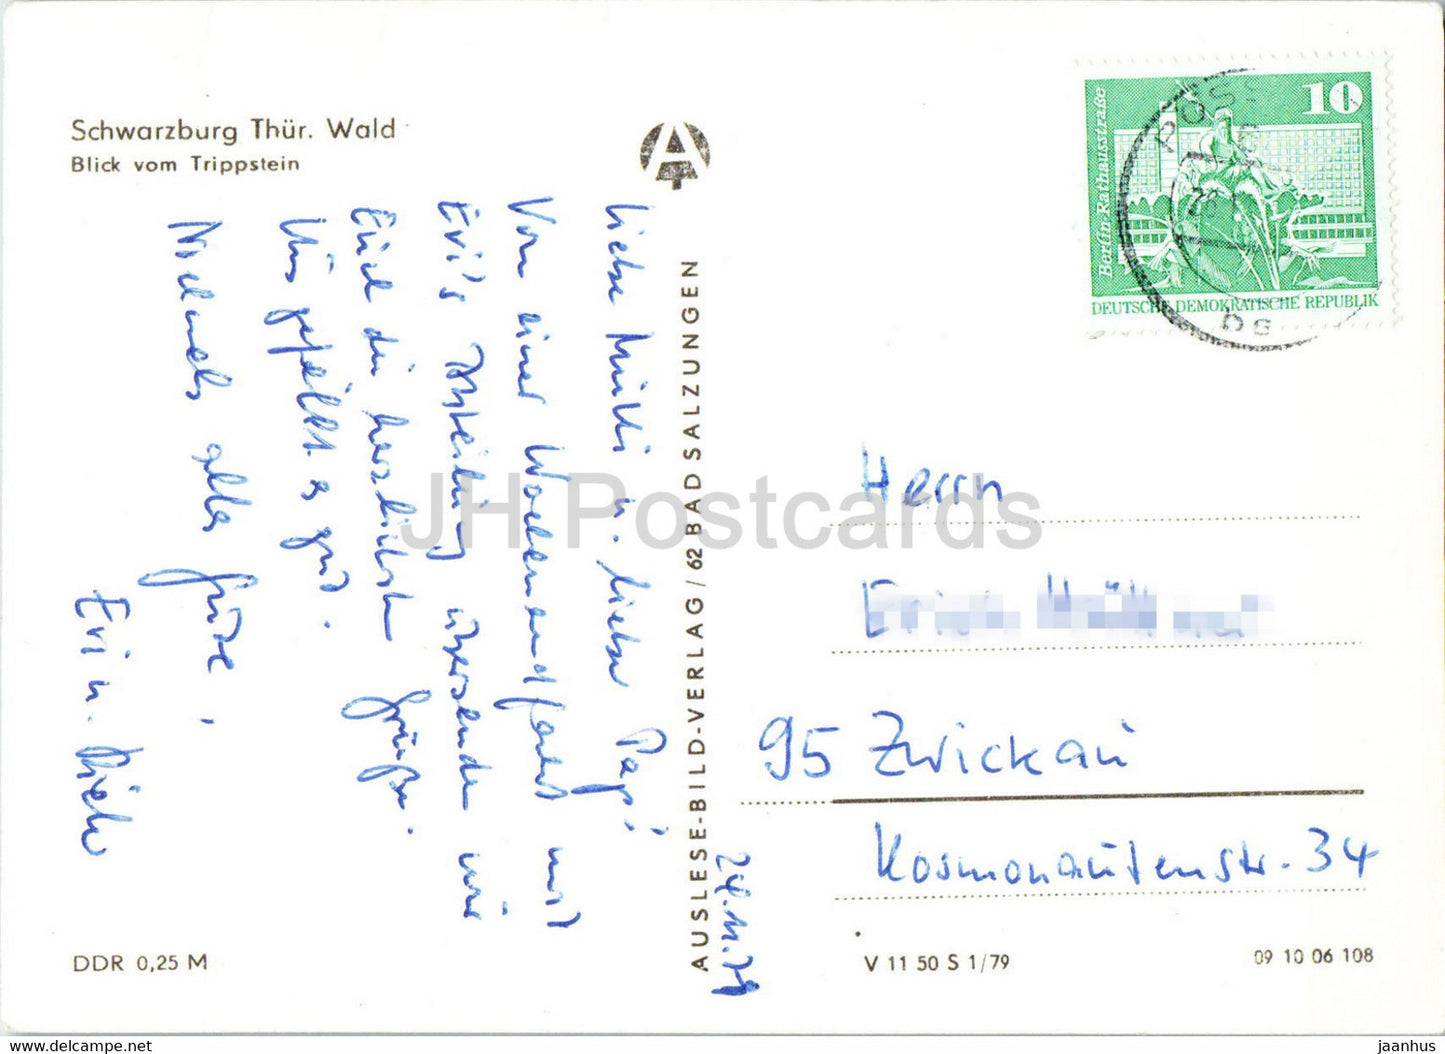 Schwarzburg Thür. Wald
Blick vom Trippstein
Liebe Mutti u. lieber Papi!
Von einer Wochenendfahrt mit
Evi's Abteilung übersenden wir
Euch die herzlichsten Grüße.
Uns gefällt es gut.
Nochmals alles Gute,
Evi u.
24.11.79
AUSLESE-BILD-VERLAG / 62 BAD SALZUNGEN
10
Berlin-Rathausstraße
DEUTSCHE DEMOKRATISCHE REPUBLIK
Herrn
95 Zwickau
Kosmonautenstr. 34
DDR 0,25 M
V 11 50 S 1/79
09 10 06 108
JH Postcards
www.delcampe.net
jaanhus